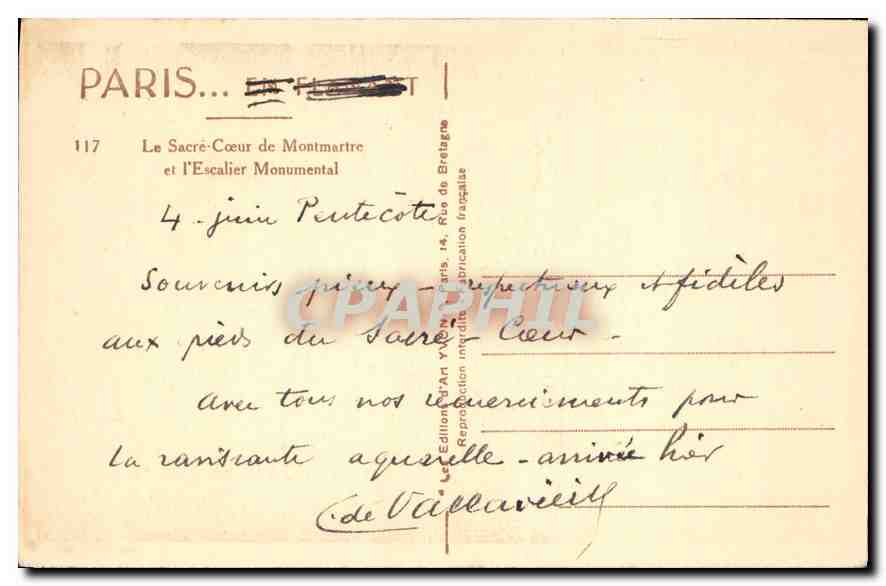 PARIS... EN FLANANT
117 Le Sacré-Cœur de Montmartre
et l'Escalier Monumental
4 - juin Pentecôte
Souvenirs pieux - respectueux et fidèles
aux pieds du Sacré-Cœur -
avec tous nos remerciements pour
la ravissante aquarelle - arrivée hier
C. de
Les Editions d'Art YVON, Paris, 14, Rue de Bretagne
Reproduction interdite Fabrication française
CPAPHIL